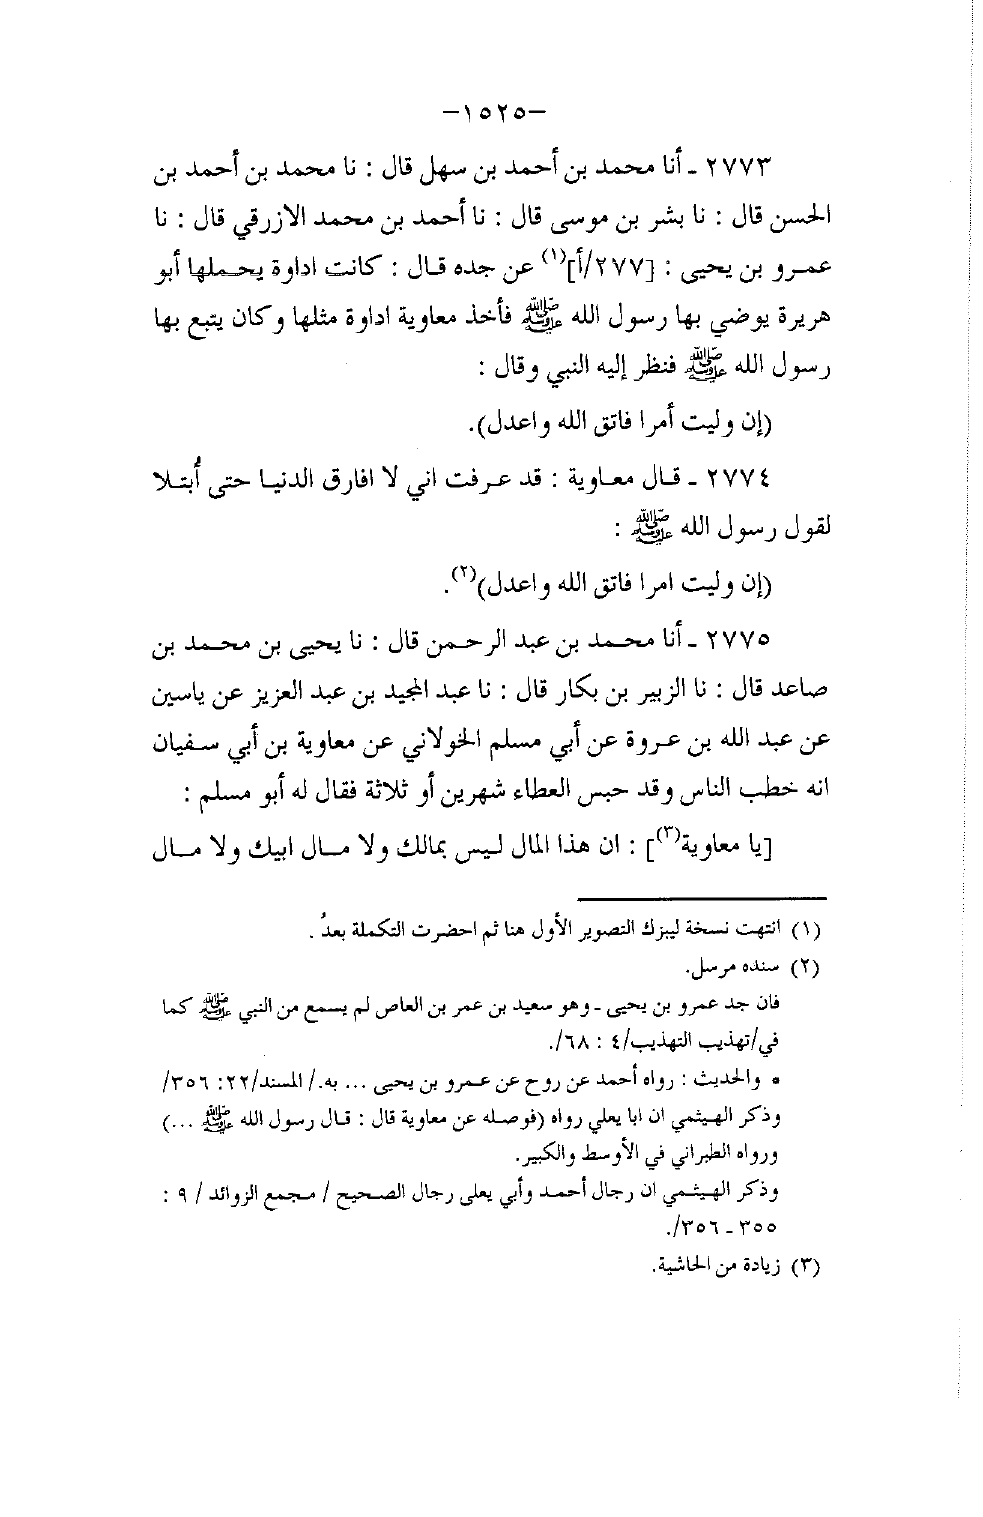 –١٥٢٥–
٢٧٧٣ ـ أنا محمد بن أحمد بن سهل قال : نا محمد بن أحمد بن
الحسن قال : نا بشر بن موسى قال : نا أحمد بن محمد الازرقي قال : نا
عمرو بن يحيى : [٢٧٧/أ](١) عن جده قال : كانت اداوة يحملها أبو
هريرة يوضي بها رسول الله ﷺ فأخذ معاوية اداوة مثلها وكان يتبع بها
رسول الله ﷺ فنظر إليه النبي وقال :
(إن وليت أمرا فاتق الله واعدل).
٢٧٧٤ ـ قال معاوية : قد عرفت اني لا افارق الدنيا حتى أُبتلا
لقول رسول الله ﷺ :
(إن وليت امرا فاتق الله واعدل)(٢).
٢٧٧٥ ـ أنا محمد بن عبد الرحمن قال : نا يحيى بن محمد بن
صاعد قال : نا الزبير بن بكار قال : نا عبد المجيد بن عبد العزيز عن ياسين
عن عبد الله بن عروة عن أبي مسلم الخولاني عن معاوية بن أبي سفيان
انه خطب الناس وقد حبس العطاء شهرين أو ثلاثة فقال له أبو مسلم :
[يا معاوية(٣)] : ان هذا المال ليس بمالك ولا مال ابيك ولا مال
(١) انتهت نسخة ليبزك التصوير الأول هنا ثم احضرت التكملة بعدُ .
(٢) سنده مرسل.
فان جد عمرو بن يحيى ـ وهو سعيد بن عمر بن العاص لم يسمع من النبي ﷺ كما
في/تهذيب التهذيب/٤ : ٦٨/.
• والحديث : رواه أحمد عن روح عن عمرو بن يحيى ... به./ المسند/٢٢: ٣٥٦/
وذكر الهيثمي ان ابا يعلي رواه (فوصله عن معاوية قال : قال رسول الله ﷺ ...)
ورواه الطبراني في الأوسط والكبير.
وذكر الهيثمي ان رجال أحمد وأبي يعلى رجال الصحيح / مجمع الزوائد / ٩ :
٣٥٥ ـ ٣٥٦/.
(٣) زيادة من الحاشية.